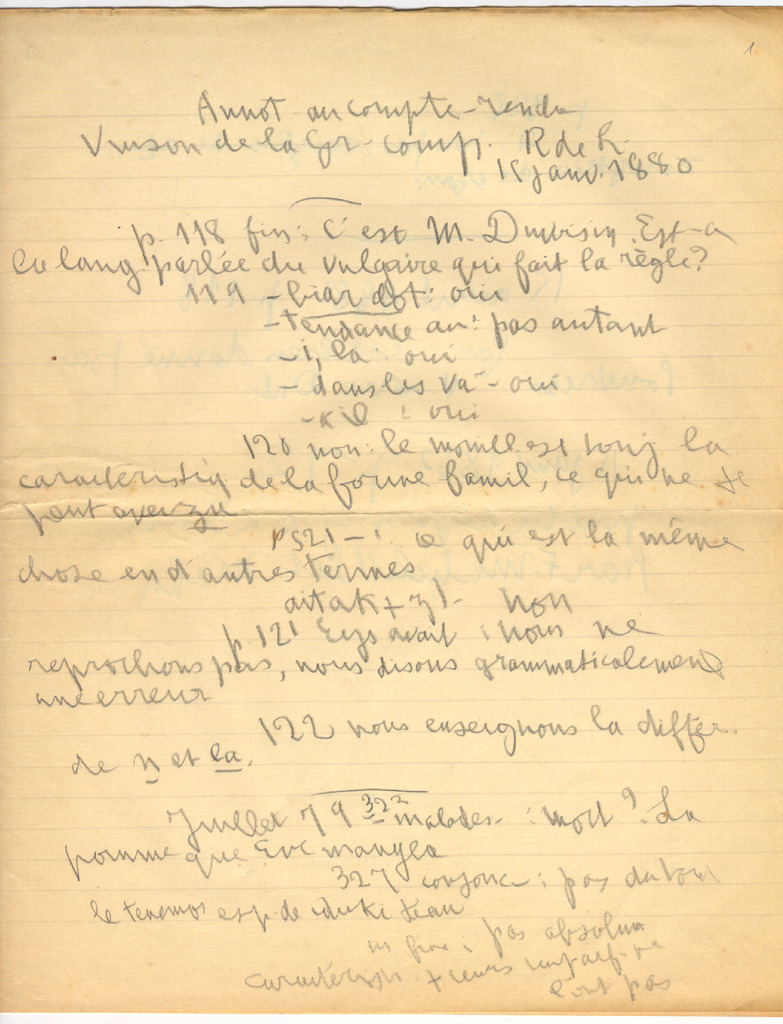 1
Annot au compte-rendu
Vinson de la Gr. comp. R de L.
15 janv. 1880
p. 118 fin: C'est M. Duvoisin. Est-ce
la lang. parlée du vulgaire qui fait la règle?
119 - biar dot: oui
- tendance au: pas autant
- i, la oui
- dans les va - oui
- : oui
120 non: le mouill est touj la
caractéristiq de la forme famil, ce qui ne
pas
p 521 - : ce qui est la même
chose en d'autres termes
aitak + zi - Non
p. 121 Eys avait : nous ne
reprochons pas, nous disons grammaticalement
une erreur
122 nous enseignons la differ.
de n et la.
Juillet 79 322 malades - : mort? La
pomme que Eve mangea
327 conjonc : pas du tout
le tenemos esp de iduki
in fine : pas absolum
caractérist. + ieurs imparf ne
l'ont pas